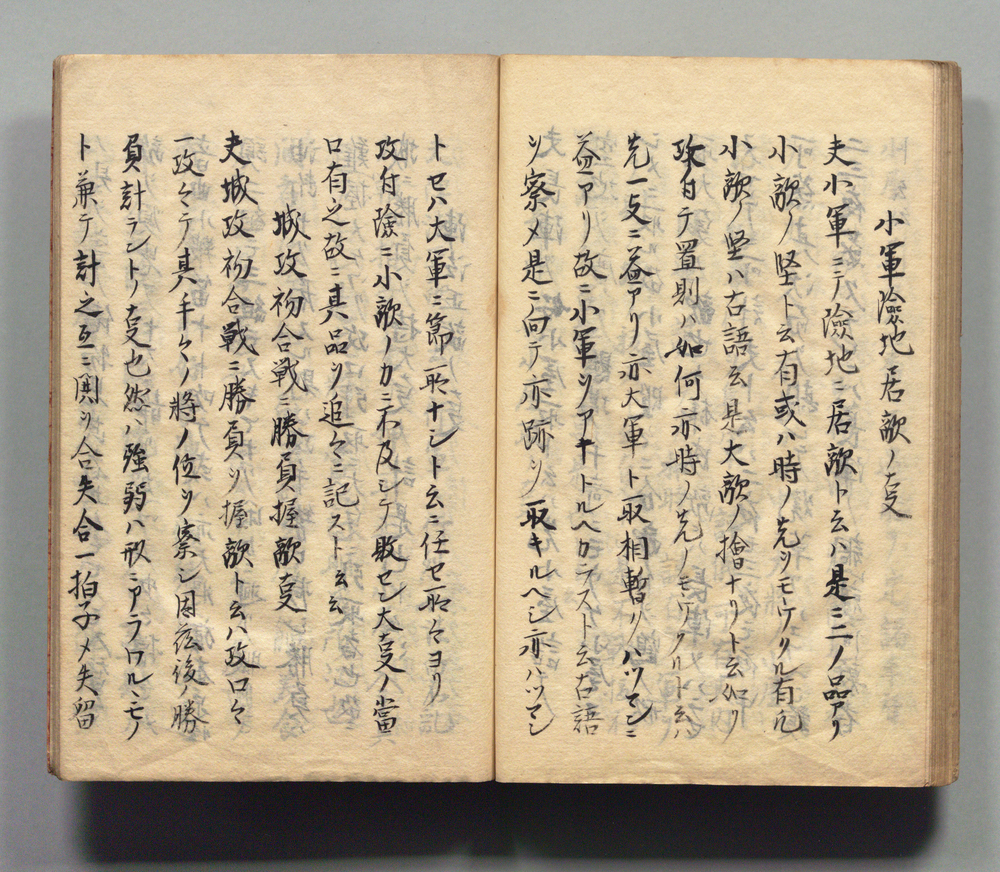 小軍險地居敵ノ㕝
夫小軍ニテ險地ニ居敵ト云ハ是ニ二ノ品アリ
小敵ノ堅ト云有或ハ時ノ先ツモウクル有凡
小敵ノ堅ハ古語云是大敵ノ擒ナリト云如ク
攻付テ置則ハ如何亦時ノ先ノモウクルト云ハ
先一支ニ益アリ亦大軍ト取相暫クハツマシニ
益アリ故ニ小軍ツアナトルヘカラスト云古語
ツ察メ是ニ向テ亦跡ツ取キルヘシ亦ハツマシ
トセハ大軍ニ節所ナシト云ニ任セ所々ヨリ
攻付險ニ小敵ノカニ不及シテ敗セン大㕝ノ當
口有之故ニ其品ツ追々ニ記スト云云
城攻初合戦ニ勝負握敵㕝
夫城攻初合戦ニ勝負ツ握敵ト云ハ攻口々
一攻々テ其手々ノ將ノ位ツ察シ因茲後ノ勝
負計ラントリ㕝也然ハ強弱ハ形ニアラワルニモノ
ト兼テ計之互ニ関ツ合矢合一拍子メ矢留